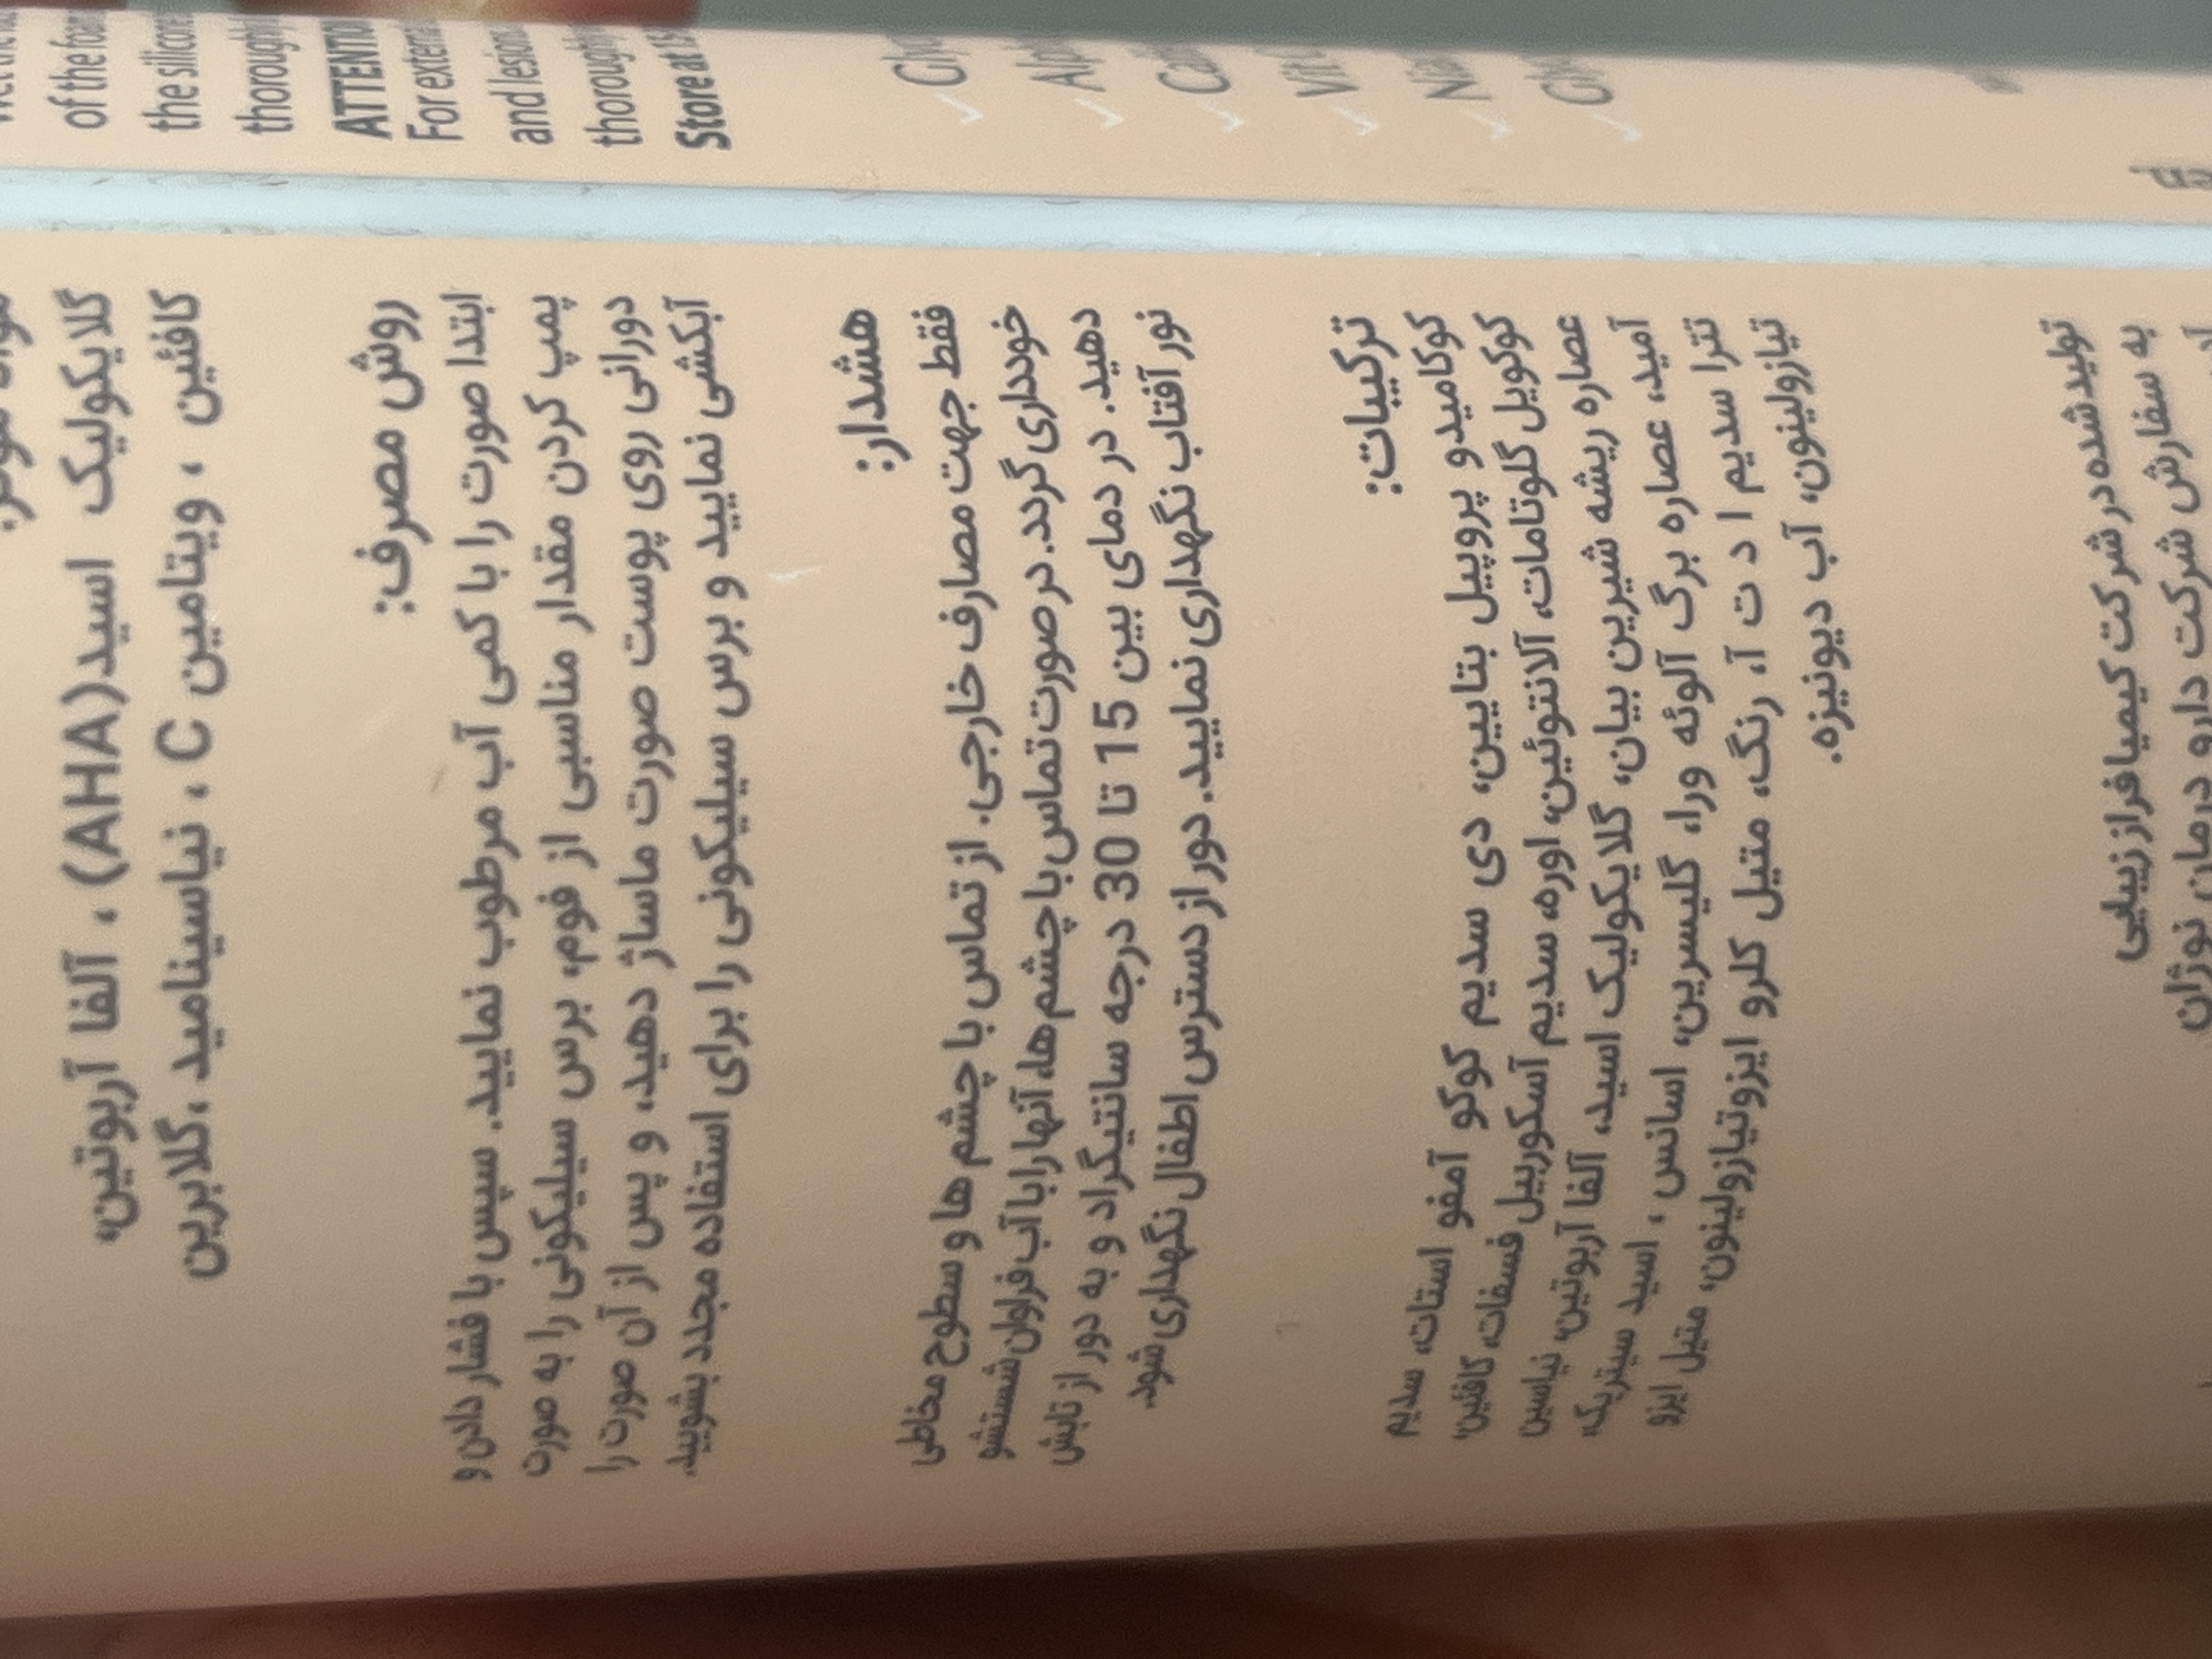 گلایکولیک اسید(AHA) ، آلفا آربوتین،
کافئین ، ویتامین C ، نیاسینامید ،گلابرین
روش مصرف:
ابتدا صورت را با کمی آب مرطوب نمایید. سپس با فشار دادن و
پمپ کردن مقدار مناسبی از فوم، برس سیلیکونی را به صورت
دورانی روی پوست صورت ماساژ دهید، و پس از آن صورت را
آبکشی نمایید و برس سیلیکونی را برای استفاده مجدد بشویید.
هشدار:
فقط جهت مصارف خارجی. از تماس با چشم ها و سطوح مخاطی
خودداری گردد. در صورت تماس با چشم ها، آنها را با آب فراوان شستشو
دهید. در دمای بین 15 تا 30 درجه سانتیگراد و به دور از تابش
نور آفتاب نگهداری نمایید. دور از دسترس اطفال نگهداری شود.
ترکیبات:
کوکامیدو پروپیل بتایین، دی سدیم کوکو آمفو استات، سدیم
کوکویل گلوتامات، آلانتوئین، اوره، سدیم آسکوربیل فسفات، کافئین،
عصاره ریشه شیرین بیان، گلایکولیک اسید، آلفا آربوتین، نیاسین
آمید، عصاره برگ آلوئه ورا، گلیسرین، اسانس ، اسید سیتریک،
تترا سدیم ا د ت آ، رنگ، متیل کلرو ایزوتیازولینون، متیل ایزو
تیازولینون، آب دیونیزه.
تولید شده در شرکت کیمیا فراز زیبایی
به سفارش شرکت دارو درمان نوژان
of the foam
the silicone
thoroughly
ATTENTION
For external
and lesion
thoroughly
Store at 15